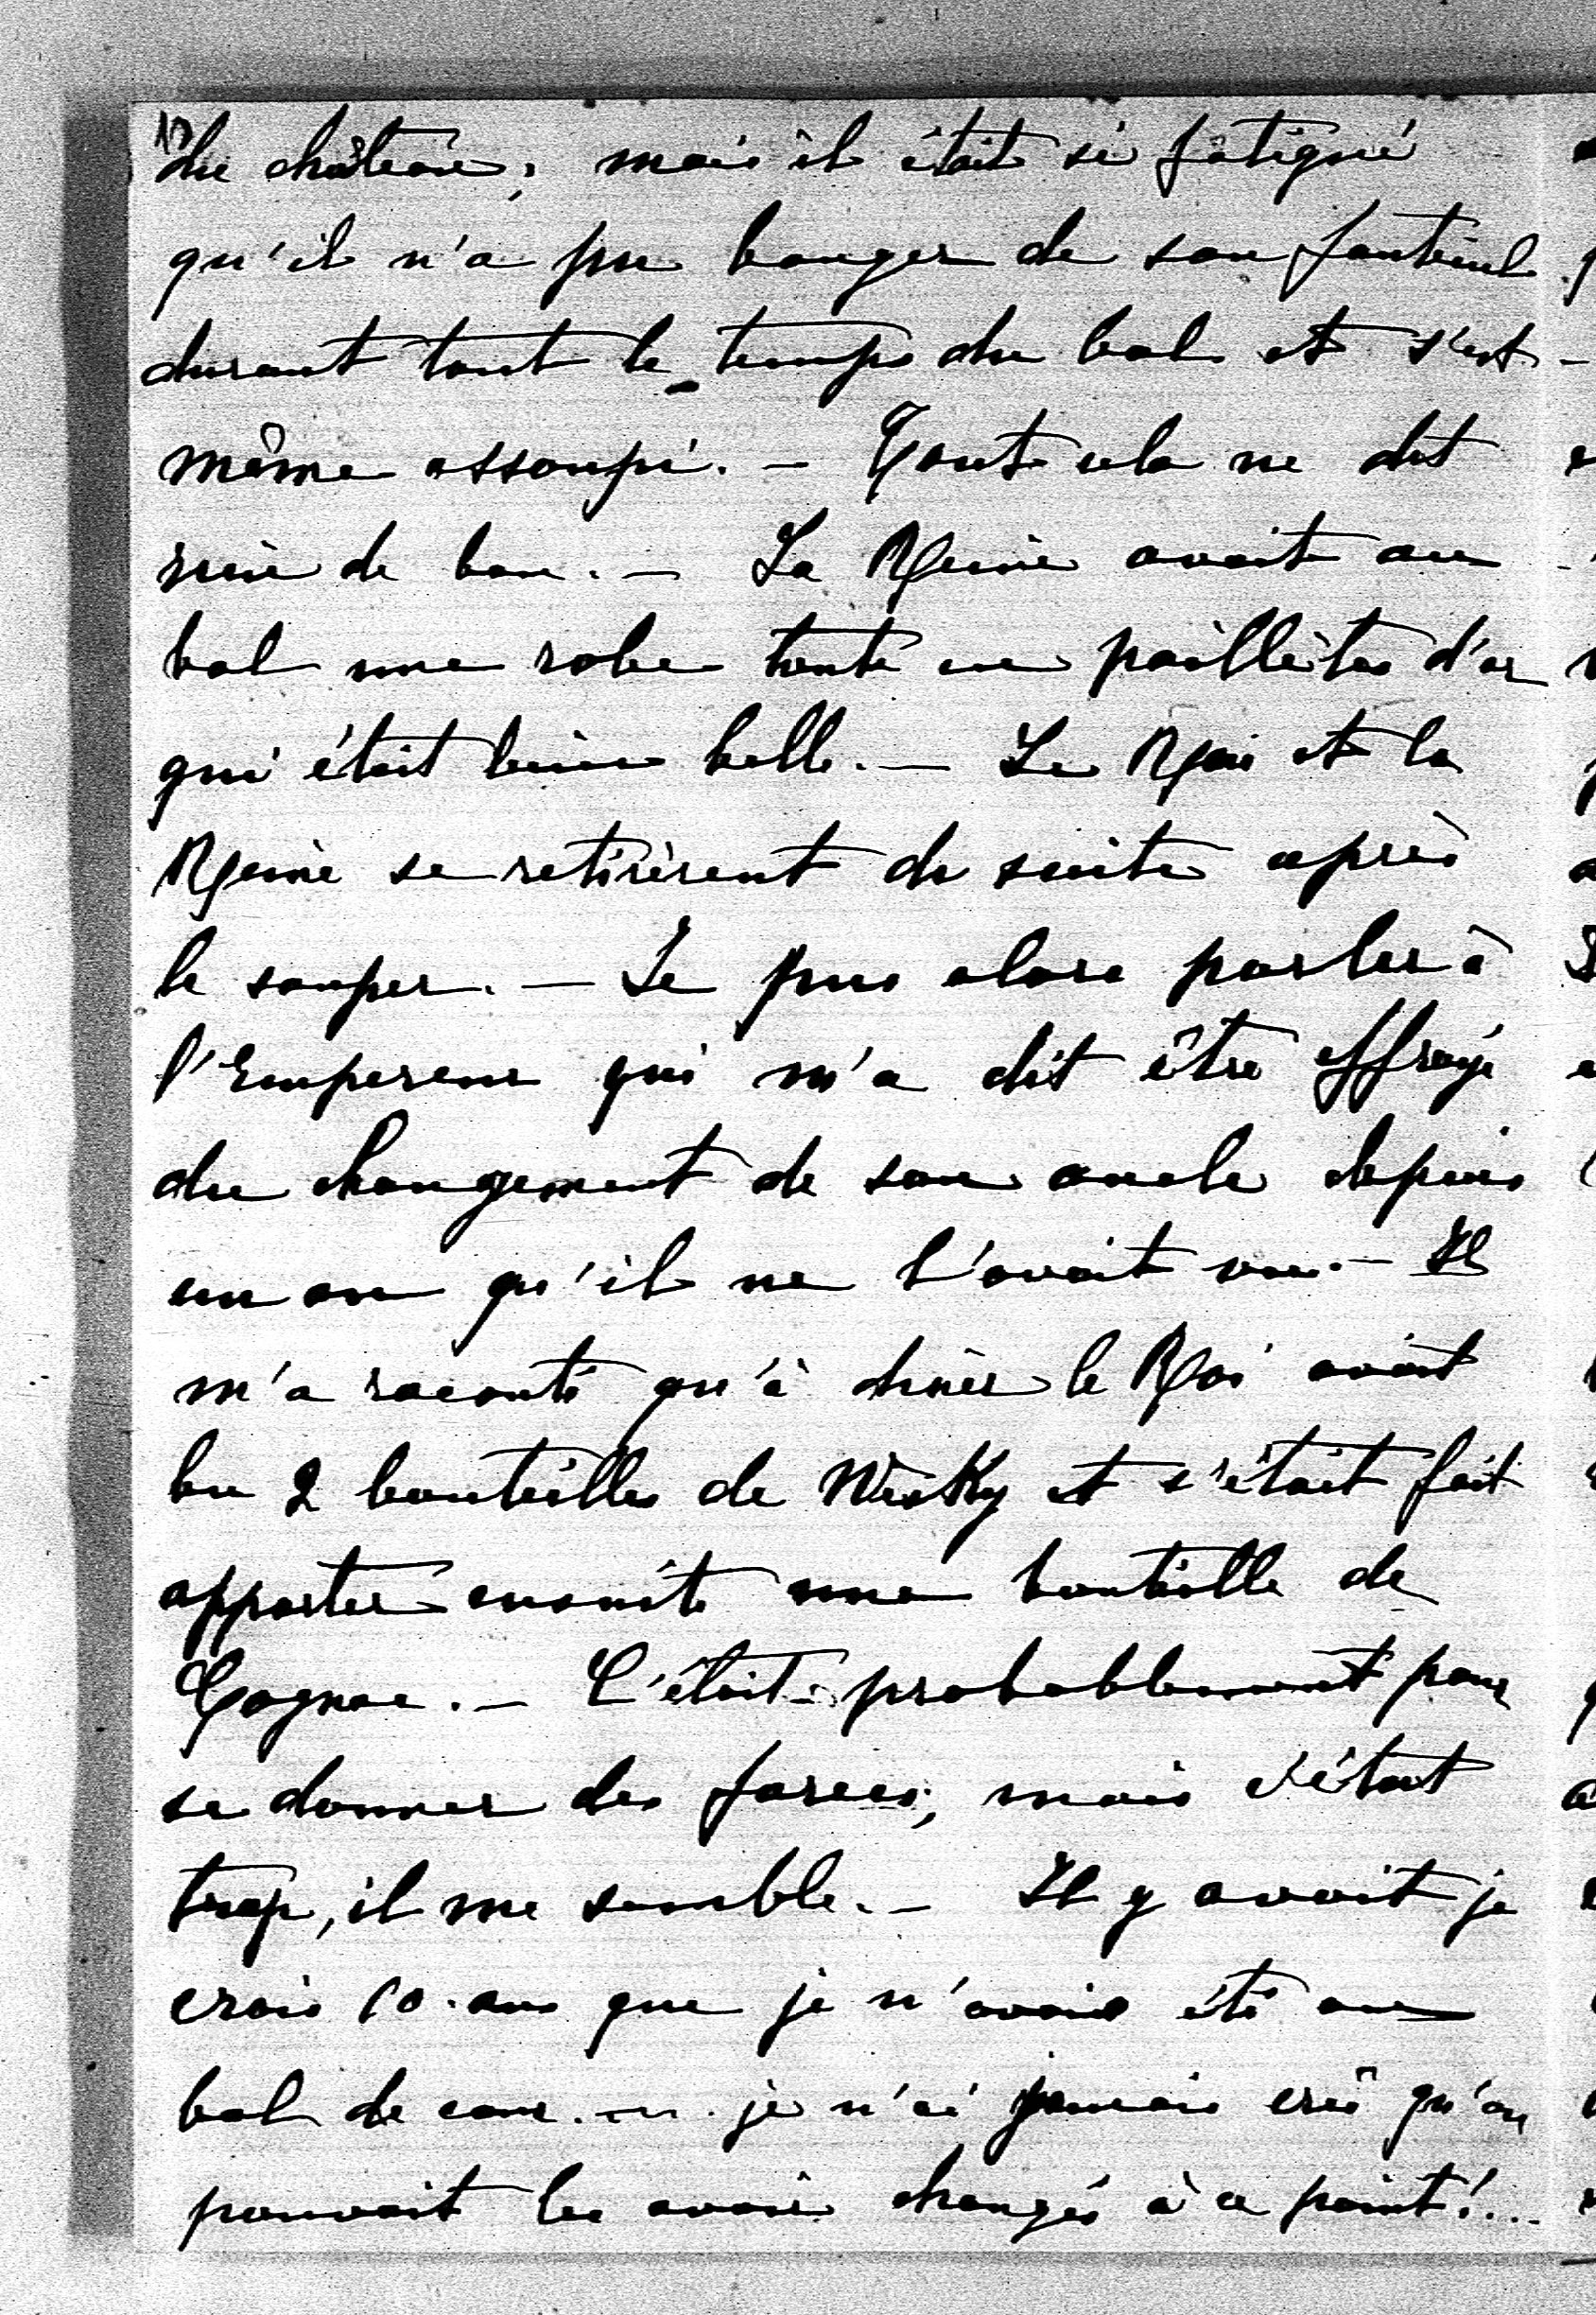 du château; mais il était si fatigué
qu'il n'a pu bouger de son fauteuil
durant tout le temps du bal et s'est
même assoupi. — Tout cela ne dit
rien de bon. — La Reine avait au
bal une robe toute en paillètes d'or
qui était bien belle. — Le Roi et la
Reine se retirèrent de suite après
le souper. — Je pus alors parler à
l'Empereur qui m'a dit être effrayé
du changement de son oncle depuis
un an qu'il ne l'avait vu. — Il
m'a raconté qu'à diner le Roi avait
bu 2 bouteilles de Wisky et s'était fait
apporter ensuite une bouteille de
Cognac. — C'était probablement pour
se donner des forces, mais c'était
trop, il me semble. — Il y avait je
crois 10 ans que je n'avais été au
bal de cour. — je n'ai jamais crû qu'on
pouvait les avoir changés à ce point!...